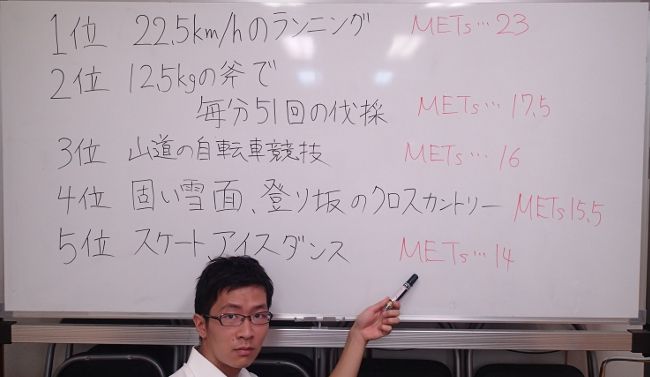 1位 22.5km/hのランニング METs…23
2位 12.5kgの斧で
毎分51回の伐採 METs…17.5
3位 山道の自転車競技 METs…16
4位 固い雪面、登り坂のクロスカントリー METs15.5
5位 スケート、アイスダンス METs…14